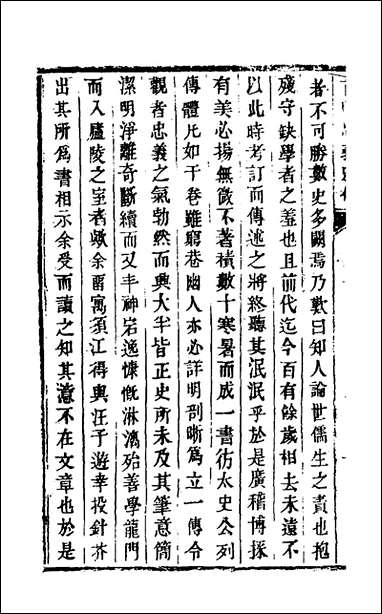 者不可勝數史多闕焉乃歎曰知人論世儒生之責也抱
殘守缺學者之羞也且前代迄今百有餘歲相去未遠不
以此時考訂而傳述之將終聽其泯泯乎於是廣稽博採
有美必揚無微不著積數十寒暑而成一書仿太史公列
傳體凡如干卷雖窮巷幽人亦必詳明剖晰爲立一傳令
觀者忠義之氣勃然而興大半皆正史所未及其筆意簡
潔明淨離奇斷續而又丰神宕逸慷慨淋漓殆善學龍門
而入廬陵之室者歟余畱寓須江得與汪子遊幸投針芥
出其所爲書相示余受而讀之知其意不在文章也於是